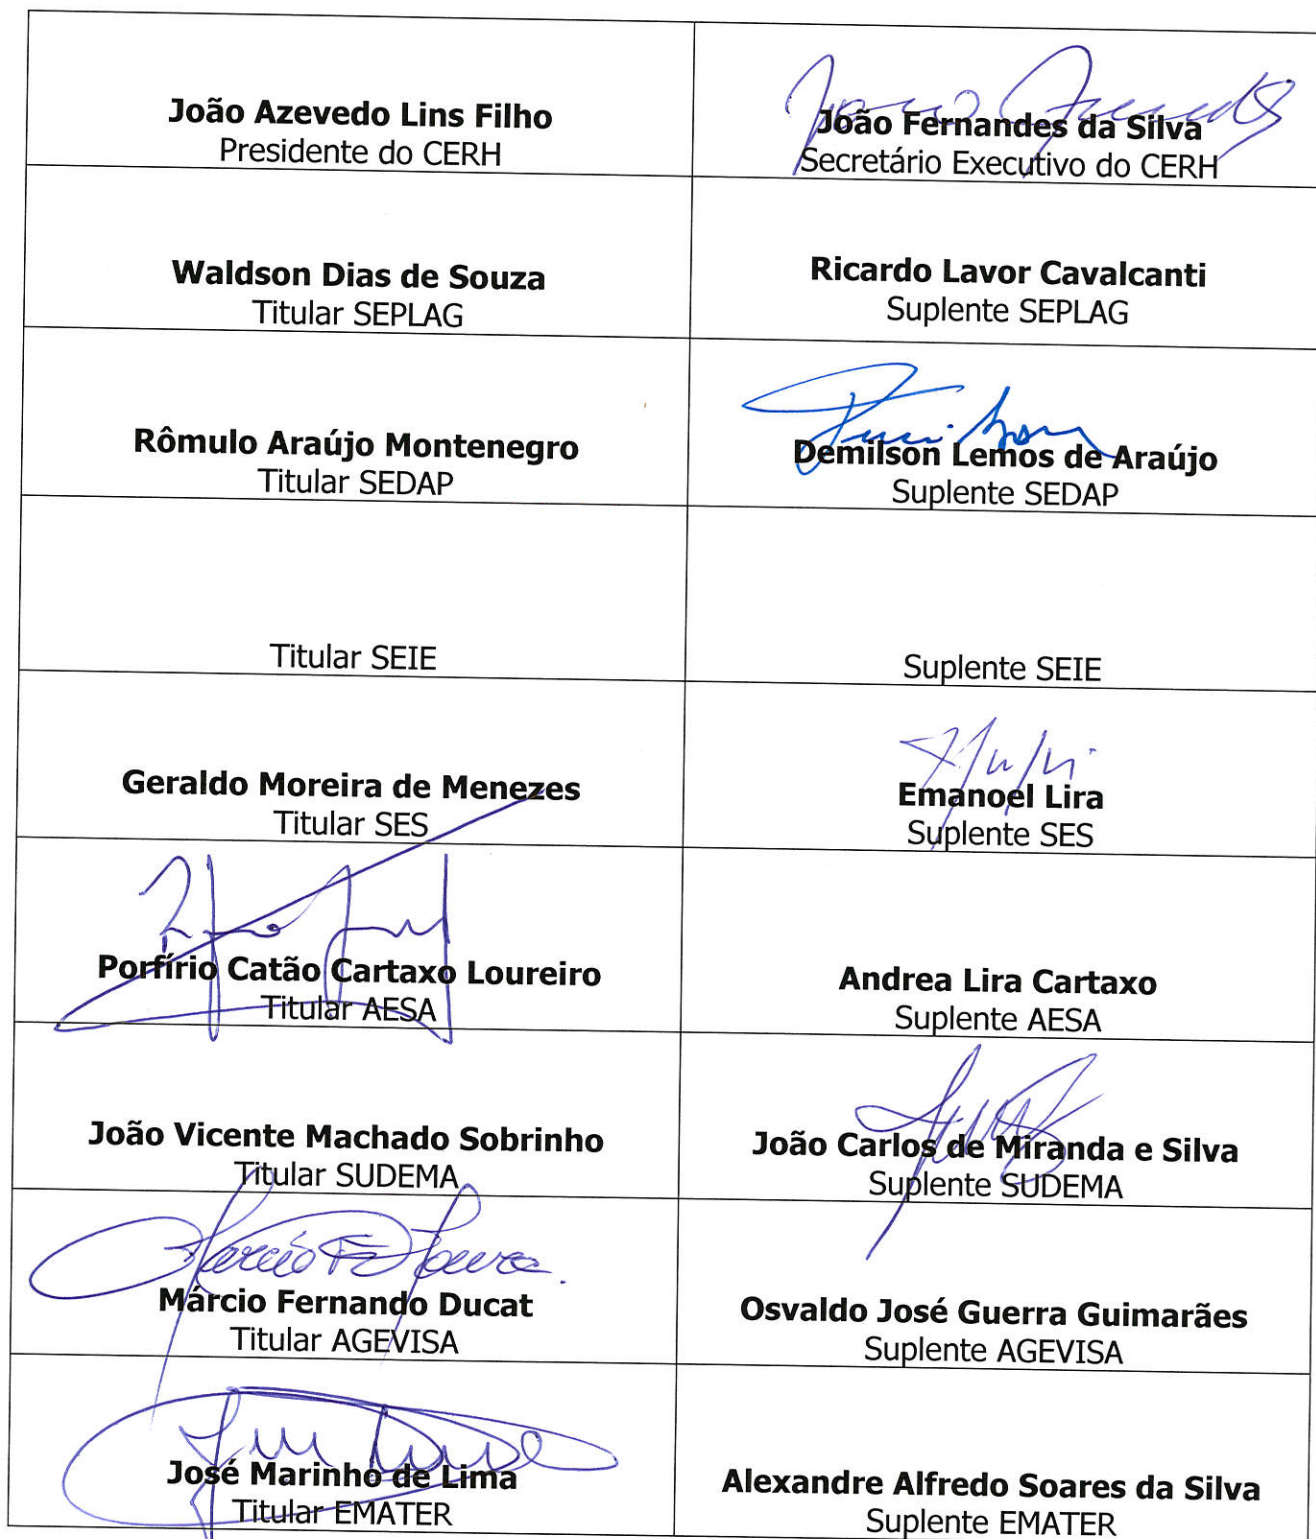 João Azevedo Lins Filho
Presidente do CERH
João Fernandes da Silva
Secretário Executivo do CERH
Waldson Dias de Souza
Titular SEPLAG
Ricardo Lavor Cavalcanti
Suplente SEPLAG
Rômulo Araújo Montenegro
Titular SEDAP
Demilson Lemos de Araújo
Suplente SEDAP
Titular SEIE
Suplente SEIE
Geraldo Moreira de Menezes
Titular SES
Emanoel Lira
Suplente SES
Porfírio Catão Cartaxo Loureiro
Titular AESA
Andrea Lira Cartaxo
Suplente AESA
João Vicente Machado Sobrinho
Titular SUDEMA
João Carlos de Miranda e Silva
Suplente SUDEMA
Márcio Fernando Ducat
Titular AGEVISA
Osvaldo José Guerra Guimarães
Suplente AGEVISA
José Marinho de Lima
Titular EMATER
Alexandre Alfredo Soares da Silva
Suplente EMATER